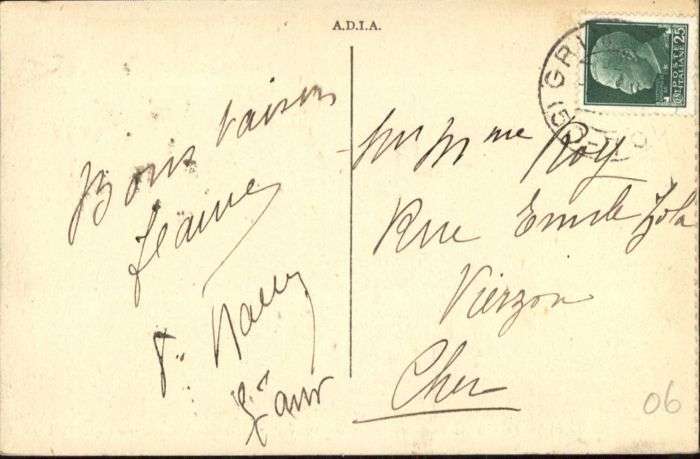 A.D.I.A.
POSTE ITALIANE
25
GRI
Bons baisers
Jeanne
Mr Mme Roly
Rue Emile Zola
Vierzon
Cher
06